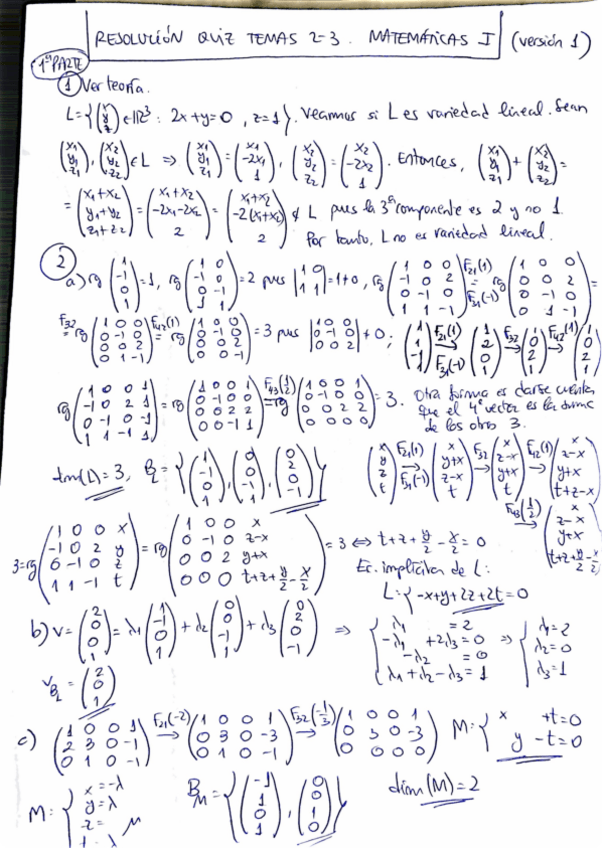 RESOLUCIÓN QUIZ TEMAS 2-3. MATEMÁTICAS I (versión 1)
1ª PARTE
1 Ver teoría.
L = {(x y z) ∈ ℝ³ : 2x+y=0, z=1}. Veamos si L es variedad lineal. Sean
(x₁ y₁ z₁), (x₂ y₂ z₂) ∈ L ⇒ (x₁ y₁ z₁) = (x₁ -2x₁ 1), (x₂ y₂ z₂) = (x₂ -2x₂ 1). Entonces, (x₁ y₁ z₁) + (x₂ y₂ z₂) =
= (x₁+x₂ y₁+y₂ z₁+z₂) = (x₁+x₂ -2x₁-2x₂ 2) = (x₁+x₂ -2(x₁+x₂) 2) ∉ L pues la 3ª componente es 2 y no 1.
Por tanto, L no es variedad lineal.
2
a) rg (1 -1 0 1) = 1, rg (1 0 / -1 0 / 0 -1 / 1 1) = 2 pues |1 0 / 1 1| = 1 ≠ 0, rg (1 0 0 / -1 0 2 / 0 -1 0 / 1 1 -1) F₂₁(1) F₃₁(-1) = rg (1 0 0 / 0 0 2 / 0 -1 0 / 0 1 -1) =
F₃₂ = rg (1 0 0 / 0 -1 0 / 0 0 2 / 0 1 -1) F₄₂(1) = rg (1 0 0 / 0 -1 0 / 0 0 2 / 0 0 -1) = 3 pues |1 0 0 / 0 -1 0 / 0 0 2| ≠ 0; (1 1 -1 1) F₂₁(1) F₃₁(-1) → (1 2 0) F₃₂ → (1 0 2 1) F₄₂(1) → (1 0 2 1)
rg (1 0 0 1 / -1 0 2 1 / 0 -1 0 -1 / 1 1 -1 1) = rg (1 0 0 1 / 0 -1 0 -1 / 0 0 2 2 / 0 0 -1 -1) F₄₃(1/2) = rg (1 0 0 1 / 0 -1 0 0 / 0 0 2 2 / 0 0 0 0) = 3. Otra forma es darse cuenta
que el 4º vector es la suma
de los otros 3.
dim(L) = 3, B_L = {(1 -1 0 1), (0 0 -1 1), (0 2 0 -1)}
(x y z t) F₂₁(1) F₃₁(-1) → (x y+x z-x t) F₃₂ → (x z-x y+x t) F₄₂(1) → (x z-x y+x t+z-x)
F₄₃(1/2) → (x z-x y+x t+z+y/2-x/2)
3 = rg (1 0 0 x / -1 0 2 y / 0 -1 0 z / 1 1 -1 t) = rg (1 0 0 x / 0 -1 0 z-x / 0 0 2 y+x / 0 0 0 t+z+y/2-x/2) = 3 ⇔ t+z+y/2-x/2 = 0
Ec. implícita de L:
L = { -x+y+2z+2t=0
b) v = (2 0 0 1) = λ₁ (1 -1 0 1) + λ₂ (0 0 -1 1) + λ₃ (0 2 0 -1) ⇒ { λ₁ = 2 / -λ₁ +2λ₃ = 0 / -λ₂ = 0 / λ₁+λ₂-λ₃ = 1 ⇒ { λ₁=2 / λ₂=0 / λ₃=1
v_B_L = (2 0 1)
c) (1 0 0 1 / 2 3 0 -1 / 0 1 0 -1) F₂₁(-2) → (1 0 0 1 / 0 3 0 -3 / 0 1 0 -1) F₃₂(-1/3) → (1 0 0 1 / 0 3 0 -3 / 0 0 0 0) M = { x +t=0 / y -t=0
M: { x = -λ / y = λ / z = μ / t = λ B_M = {(-1 1 0 1), (0 0 1 0)} dim(M) = 2